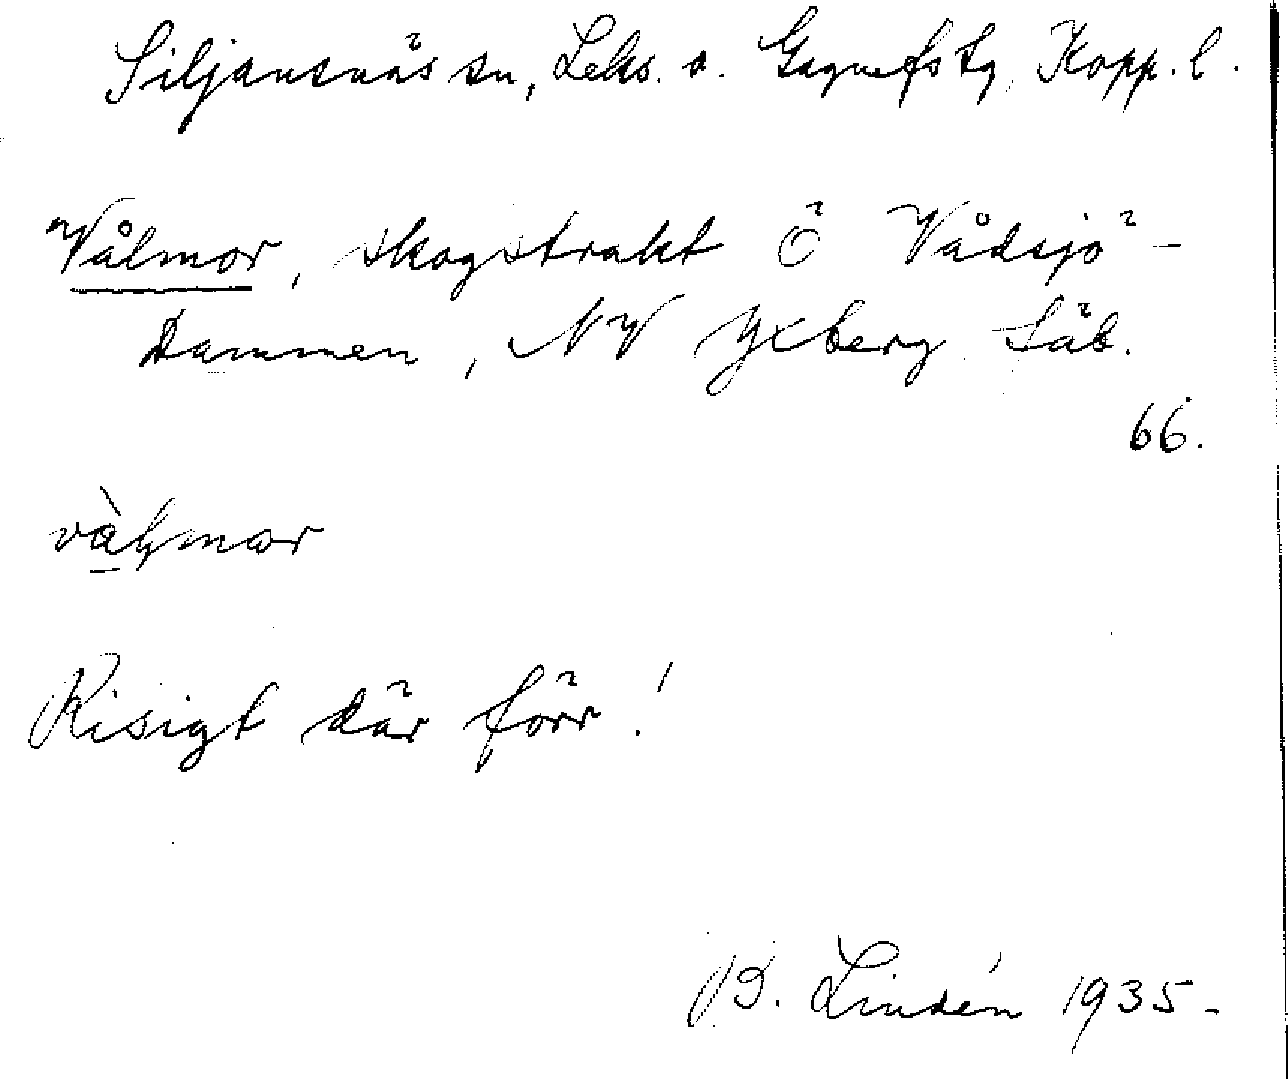 Siljansnäs sn, Leks. o. Gagnefs tg, Kopp. l.
Vålmor, skogstrakt Ö Vådsjö-
dammen, NV Yxberg säb.
66.
vàḷmar
Risigt där förr!
B. Lindén 1935-